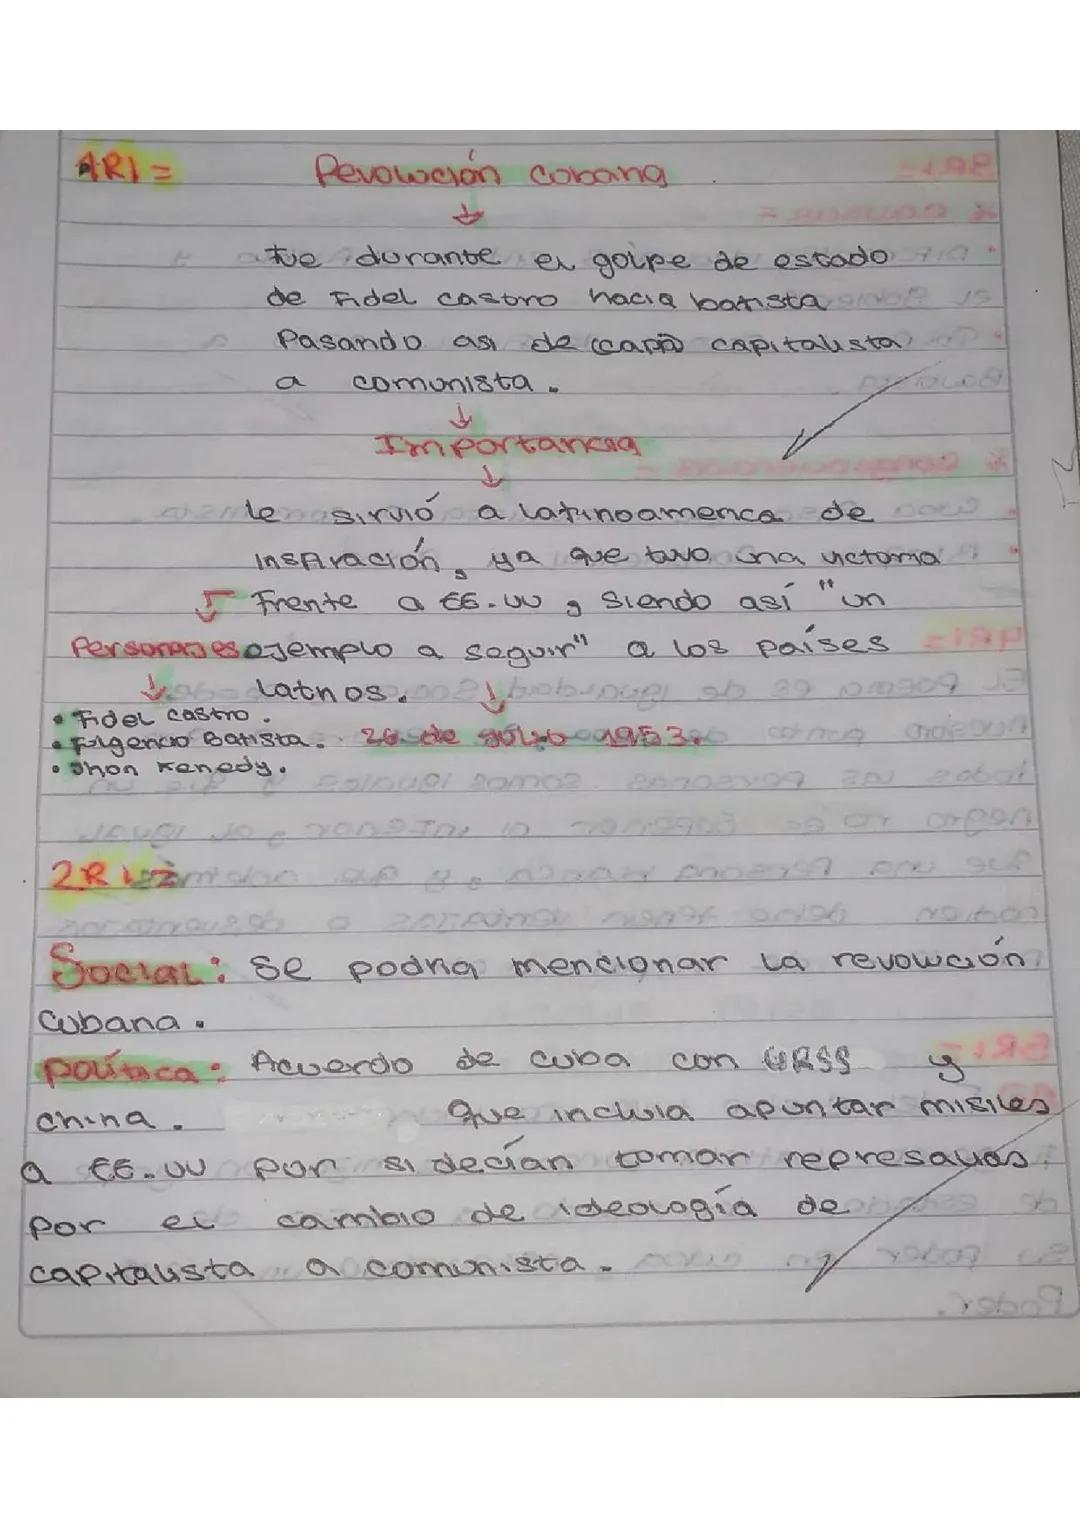 1R1= Revolución cubana
↓
fue durante el golpe de estado
de Fidel castro hacia batista
Pasando asi de capitalista
a comunista.
↓
Importancia
↓
le sirvió a latinoamerica de
inspiración, ya que tuvo una victoria
Frente a EE.UU, siendo así "un
ejemplo a seguir" a los países
latinos.
Personajes
↓
• Fidel castro.
• Fulgencio Batista.
• Jhon Kenedy.
↓
26 de julio 1953.
2R1=
Social: Se podria mencionar la revolución
cubana.
política: Acuerdo de cuba con URSS y
china. que incluia apuntar misiles
a EE.UU por si decían tomar represalias
por el cambio de ideología de
capitalista a comunista.